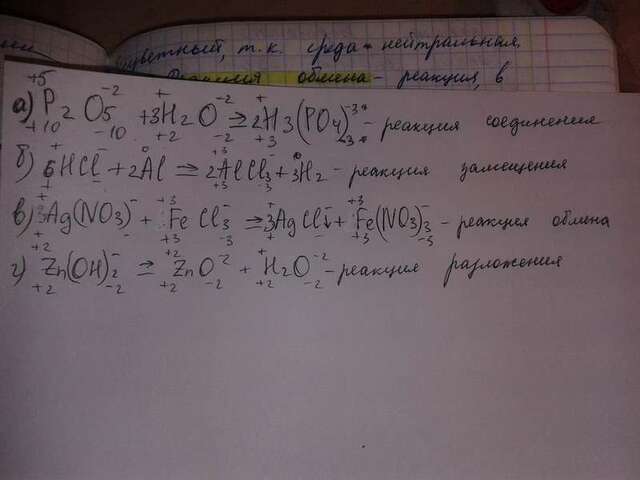 цветный, т.к. среда - нейтральная.
Реакция обмена - реакция, в
а) P₂⁺⁵O₅⁻² + 3H₂⁺O⁻² ⇄ 2H₃⁺(PO₄)⁻³ - реакция соединения
+10 -10 +2 -2 +3 -3
б) 6H⁺Cl⁻ + 2Al⁰ ⇄ 2Al⁺³Cl₃⁻ + 3H₂⁰ - реакция замещения
+ - +3 -3
в) 3Ag⁺(NO₃)⁻ + Fe⁺³Cl₃⁻ ⇄ 3Ag⁺Cl⁻↓ + Fe⁺³(NO₃)₃⁻ - реакция обмена
+ - +3 -3 + - +3 -3
г) Zn⁺²(OH)₂⁻ ⇄ Zn⁺²O⁻² + H₂⁺O⁻² - реакция разложения
+2 -2 +2 -2 +2 -2